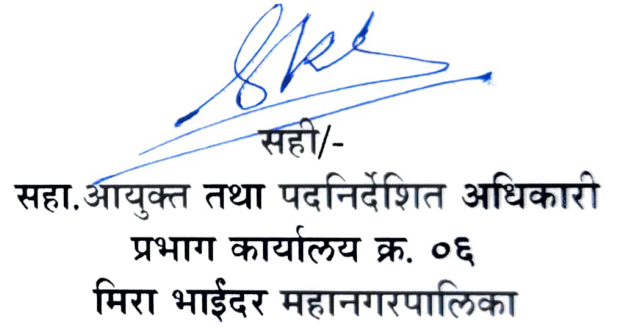 सही/-
सहा.आयुक्त तथा पदनिर्देशित अधिकारी
प्रभाग कार्यालय क्र. ०६
मिरा भाईंदर महानगरपालिका